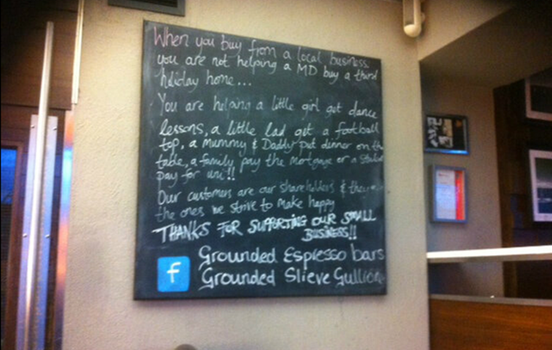 When you buy from a local business
you are not helping a MD buy a third
holiday home...
You are helping a little girl get dance
lessons, a little lad get a football
top, a mummy & Daddy put dinner on the
table, a family pay the mortgage or a student
pay for uni!!
Our customers are our shareholders & they
the ones we strive to make happy
THANKS FOR SUPPORTING OUR SMALL
BUSINESS!!
f Grounded Espresso bars
Grounded Slieve Gullion